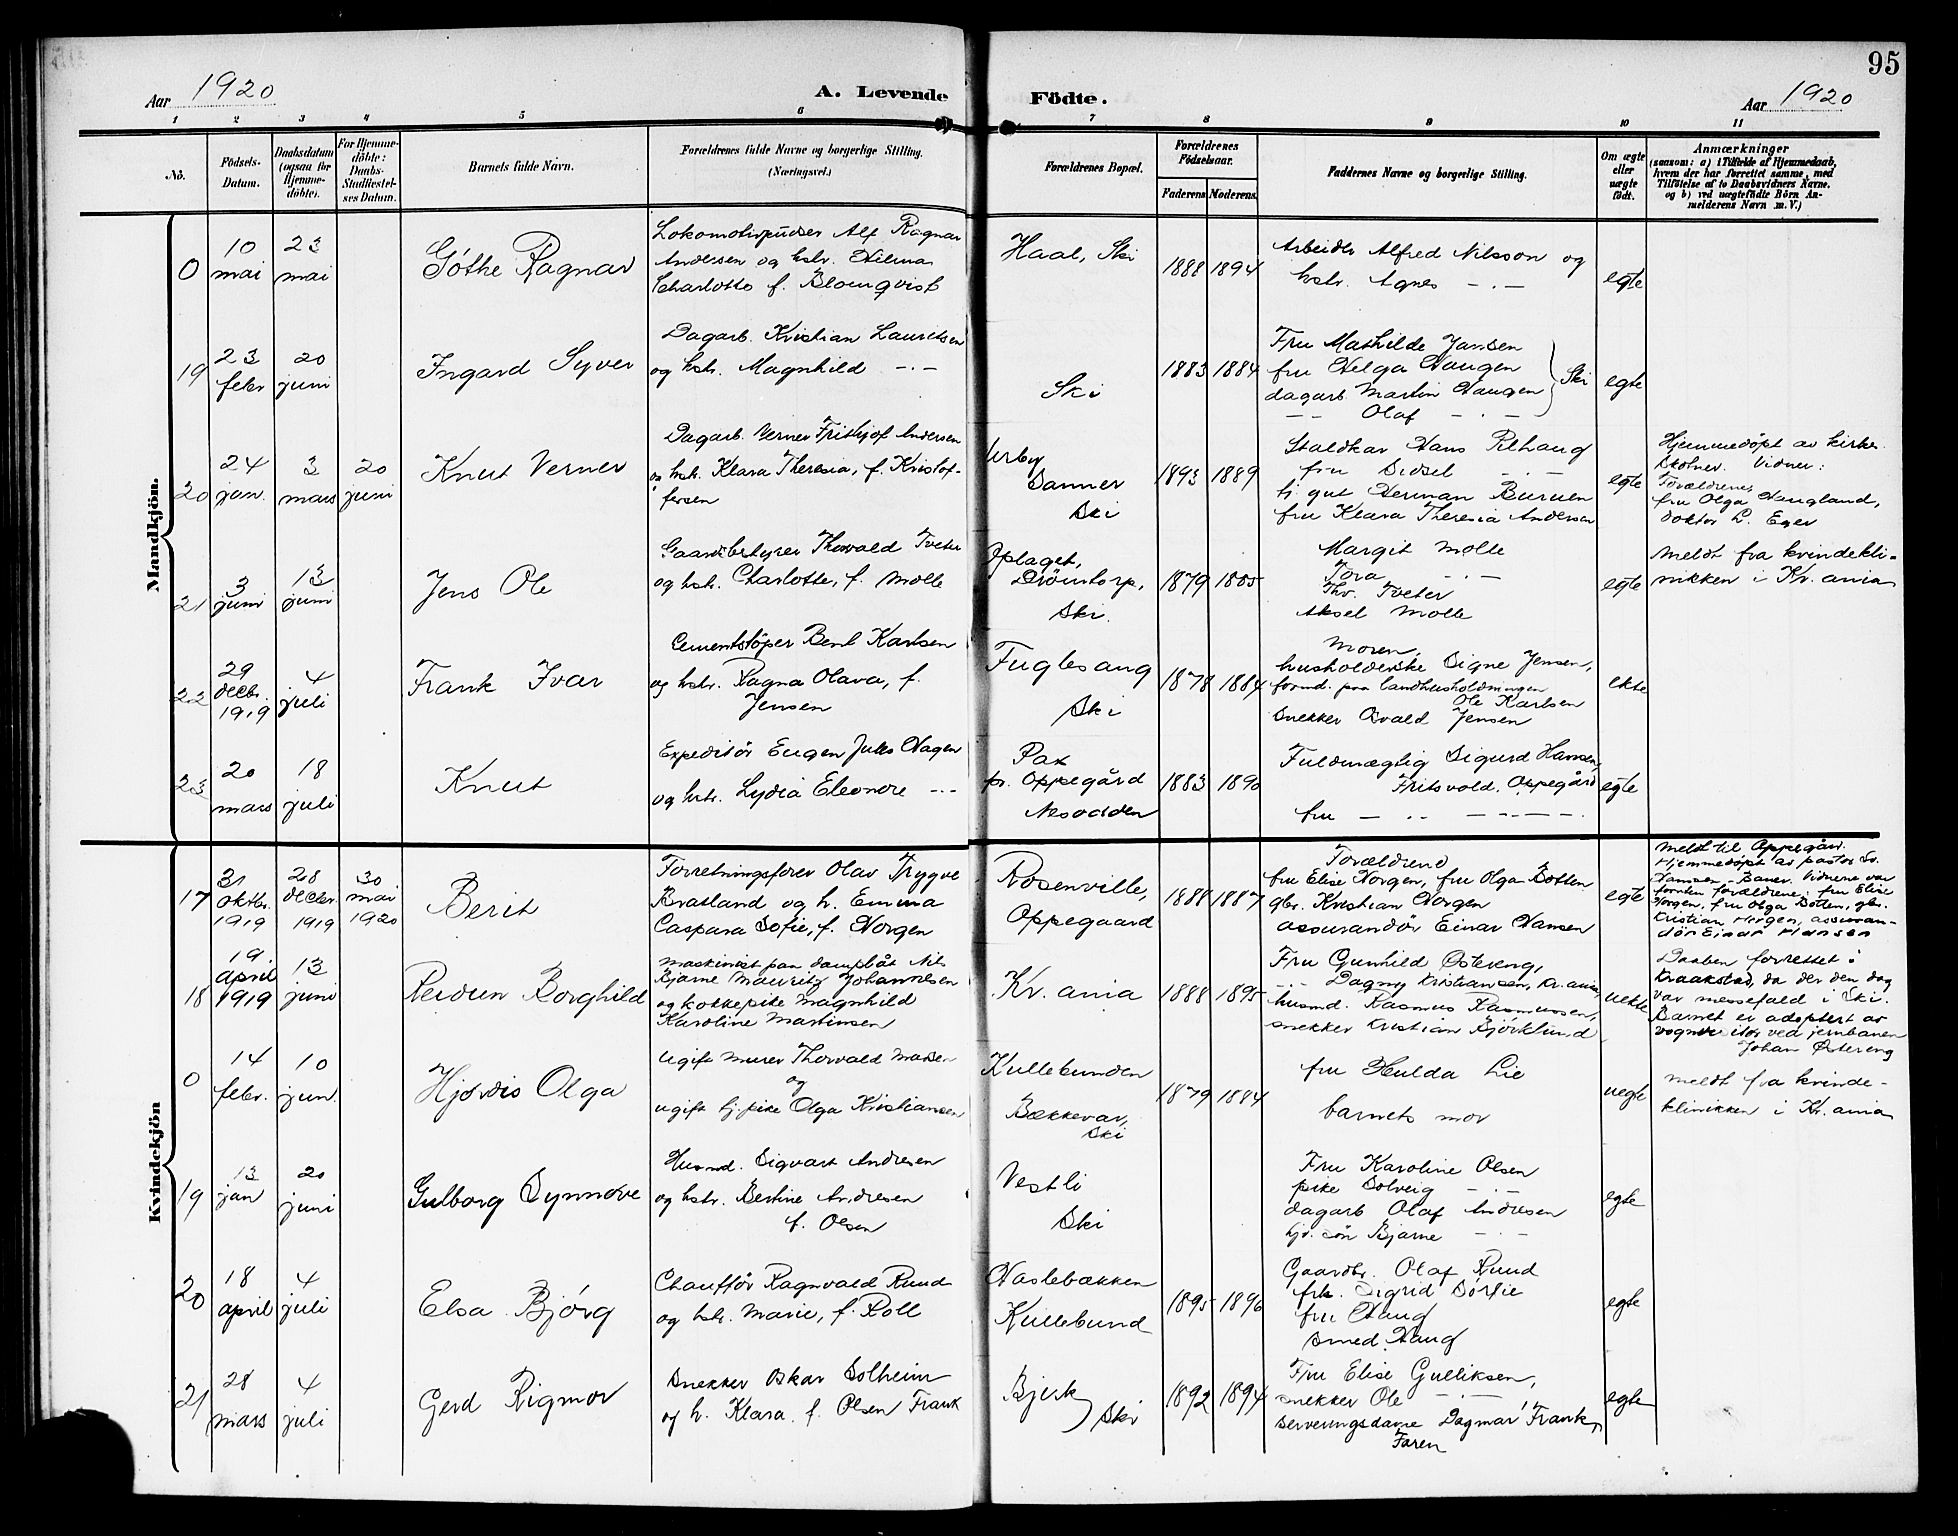 95
Aar 1920
A. Levende Födte.
Aar 1920
1 2 3 4 5 6 7 8 9 10 11
No.
Födsels-Datum.
Daabsdatum (ogsaa for Hjemmedöbte).
For Hjemmedöbte: Daabs-Stadfæstelses Datum.
Barnets fulde Navn.
Forældrenes fulde Navne og borgerlige Stilling.
(Næringsvei.)
Forældrenes Bopæl.
Forældrenes Födselsaar.
Faderens. Moderens.
Faddernes Navne og borgerlige Stilling.
Om ægte eller uægte födt.
Anmærkninger
(saasom: a) i Tilfælde af Hjemmedaab,
hvem der har forrettet samme, med
Tilföielse af to Daabsvidners Navne,
og b) ved uægtefödte Börn An-
melderens Navn m. V.)
Mandkjön.
0
10 mai
23 mai
Gøthe Ragnar
Lokomotivpudser Alf Ragnar
Andersen og hstr. Hilma
Charlotte f. Blomqvist
Haal, Ski
1888 1894
Arbeider Alfred Nilsson og
hstr. Agnes -.-
egte
19
23 febr
20 juni
Ingard Syver
Dagarb. Kristian Lauritsen
og hstr. Magnhild -.-
Ski
1883 1884
Fru Mathilde Jansen
fru Helga Haugen
dagarb. Martin Haugen
-- Olaf -.-
Ski
egte
20
24 jan.
3 mars
20 juni
Knut Verner
Dagarb. Verner Frithjof Andersen
og hstr. Klara Theresia, f. Kristof-
fersen
Sanner
Ski
1893 1889
Staldkar Hans Rehaug
fru Sidsel -.-
tj. gut Herman Buruen
fru Klara Theresia Andersen
egte
Hjemmedøpt av kirke-
skolner. Vidner:
Forældrene,
fru Olga Haugland,
doktor L. Eger
21
3 juni
13 juni
Jens Ole
Gaardsbestyrer Thorvald Tveter
og hstr. Charlotte, f. Molle
Oplaget,
Drömtorp,
Ski.
1879 1885
Margit Molle
Tora -.-
Thv. Tveter
Aksel Molle
egte
Meldt fra kvindekli-
nikken i Kr.ania
22
29 decbr. 1919
4 juli
Frank Ivar
Cementstøper Bent Karlsen
og hstr. Ragna Olava, f.
Jensen
Fuglesang
Ski
1878 1884
Moren,
husholderske Signe Jensen,
formd. paa landhusholdningen
Ole Karlsen
Snekker Osvald Jensen
ekte
23
20 mars
18 juli
Knut
Expeditør Eugen Julis Hagen
og hstr. Lydia Eleonore ---
Pax
pr. Oppegård
Nesodden
1883 1890
Fuldmægtig Sigurd Hansen,
Fritsvold, Oppegård
fru - .. - .. - .. -
egte
Kvindekjön
17
31 oktbr. 1919
28 decbr. 1919
30 mai 1920
Berit
Forretningsfører Olav Trygve
Bratland og h. Emma
Caspara Sofie, f. Norgen
Rosenville,
Oppegaard
1888 1887
Forældrene
fru Elise Norgen, fru Olga Botten
gbr. Kristian Norgen
assurandör Einar Hansen
egte
Meldt til Oppegård.
Hjemmedøpt av pastor Sv.
Hanssen-Bauer. Vidnerne var
foruten forældrene: fru Elise
Norgen, fru Olga Botten, gbr.
Kristian Norgen, assuran-
dör Einar Hansen
18
19. april 1919
13 juni
Reidun Borghild
Maskinist paa dampbåt Nils
Bjarne Mauritz Johannesen
og kokkepike Magnhild
Karoline Martinsen
Kr.ania
1888 1895
Fru Gunhild Østereng,
-.- Dagny Kristiansen, Kr.ania,
husmd. Rasmus Rasmussen,
snekker Kristian Björklund
uekte
Daaben forrettet i
Kraakstad, da der den dag
var messefald i Ski.
Barnet er adoptert av
vognvisitør ved jernbanen
Johan Østereng
0
14 febr.
10 jun.
Hjørdis Olga
Ugift murer Thorvald Madsen
og
ugift tj.pike Olga Kristiansen
Kullebunden
Bækkevar,
Ski
1879 1884
fru Hulda Lie
barnets mor
uegte
Meldt fra kvinde-
klinikken i Kr.ania
19
13 jan
20 juni
Gulborg Synnøve
Husmd. Sigvart Andresen
og hstr. Bertine Andresen
f. Olsen
Vestli
Ski
Fru Karoline Olsen
pike Solveig -.-
dagarb Olaf Andresen
hjv. sön Bjarne -.-
egte
20
18 april
4 juli
Elsa Bjørg
Chauffør Ragnvald Ruud
og hstr. Marie, f. Roll
Haslebækken
Kullebund
1895 1896
Gaardbr. Olaf Ruud
frk. Sigrid Sørlie
fru Haug
Smed Haug
egte
21
28 mars
4 juli
Gerd Rigmor
Snekker Oskar Solheim
og h. Klara f. Olsen Frank
Bjerk
Ski
1892 1894
Fru Elise Gulliksen,
snekker Ole -.-
serveringsdame Dagmar Frank,
Faren
egte